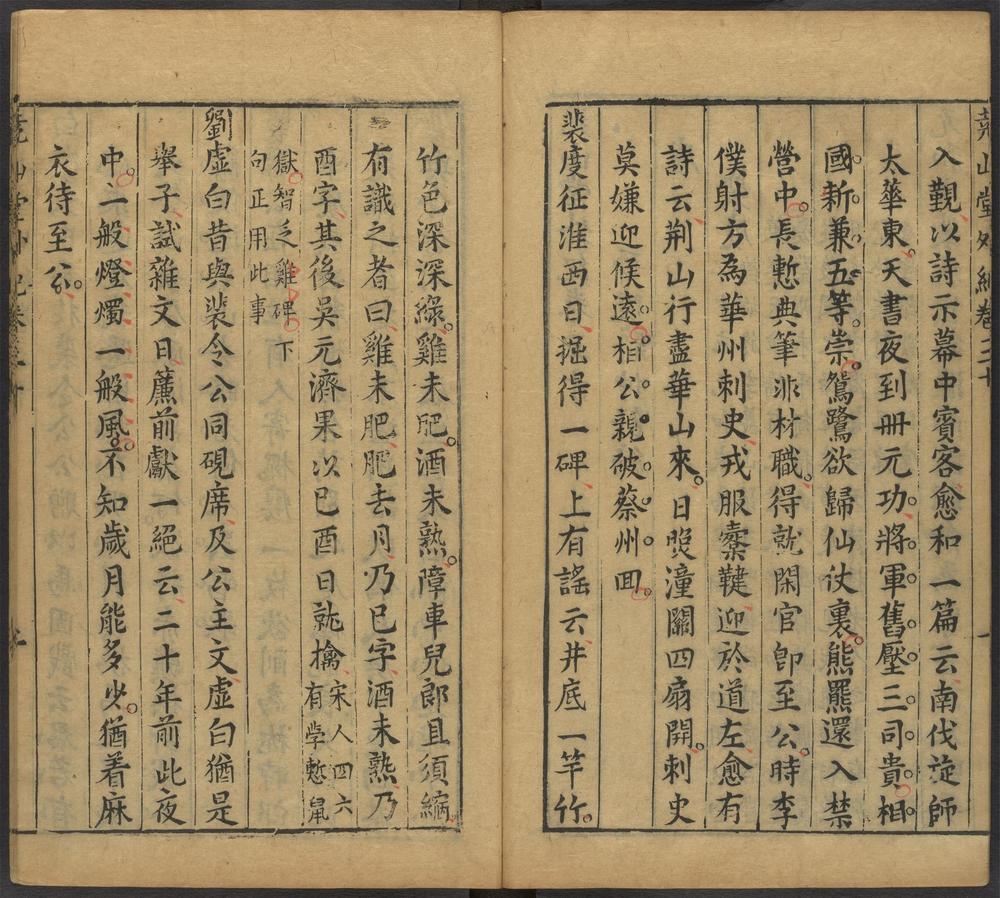 堯山堂外紀卷三十
一
入觀以詩示幕中賓客愈和一篇云南伐旋師
太華東天書夜到冊元功將軍舊壓三司貴相
國新兼五等崇鴛鷺欲歸仙仗裏熊羆還入禁
營中長慙典筆非材職得就閑官卽至公時李
僕射方為華州刺史戎服櫜鞬迎於道左愈有
詩云荆山行盡華山來日照潼關四扇開刺史
莫嫌迎候遠相公親破蔡州回
裴度征淮西日掘得一碑上有謠云井底一竿竹
竹色深深綠雞未肥酒未熟障車兒郎且須縮
有識之者曰雞未肥肥去月乃巳字酒未熟乃
酉字其後吳元濟果以巳酉日就擒宋人四六
有學慙鼠
獄智乏雞碑下
句正用此事
劉虛白昔與裴令公同硯席及公主文虛白猶是
舉子試雜文日簾前獻一絕云二十年前此夜
中一般燈燭一般風不知歲月能多少猶着麻
衣待至公